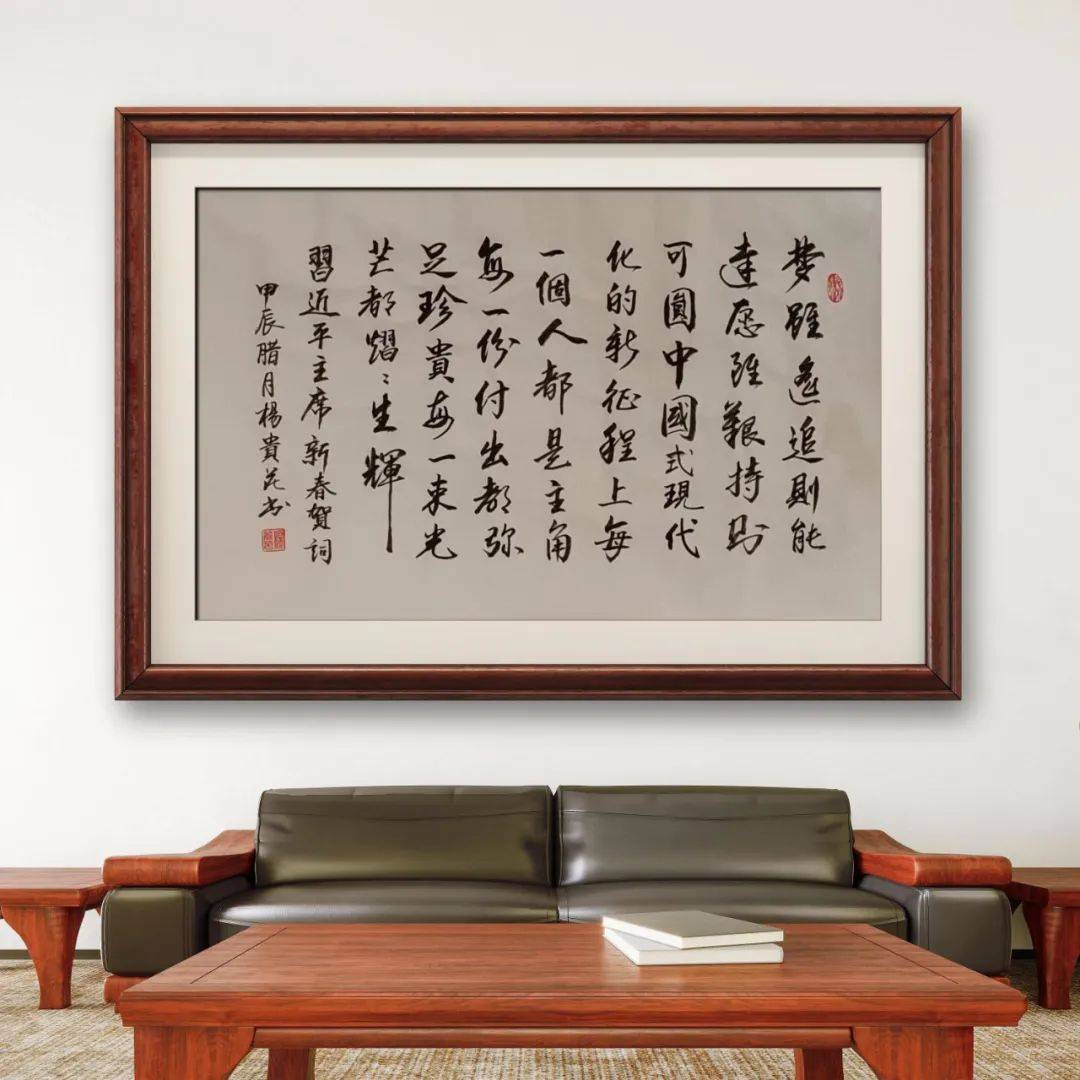 梦雖遙追則能
達愿雖艱持則
可圓中國式現代
化的新征程上每
一個人都是主角
每一份付出都弥
足珍貴每一束光
芒都熠〻生輝
習近平主席新春賀詞
甲辰腊月楊貴花书